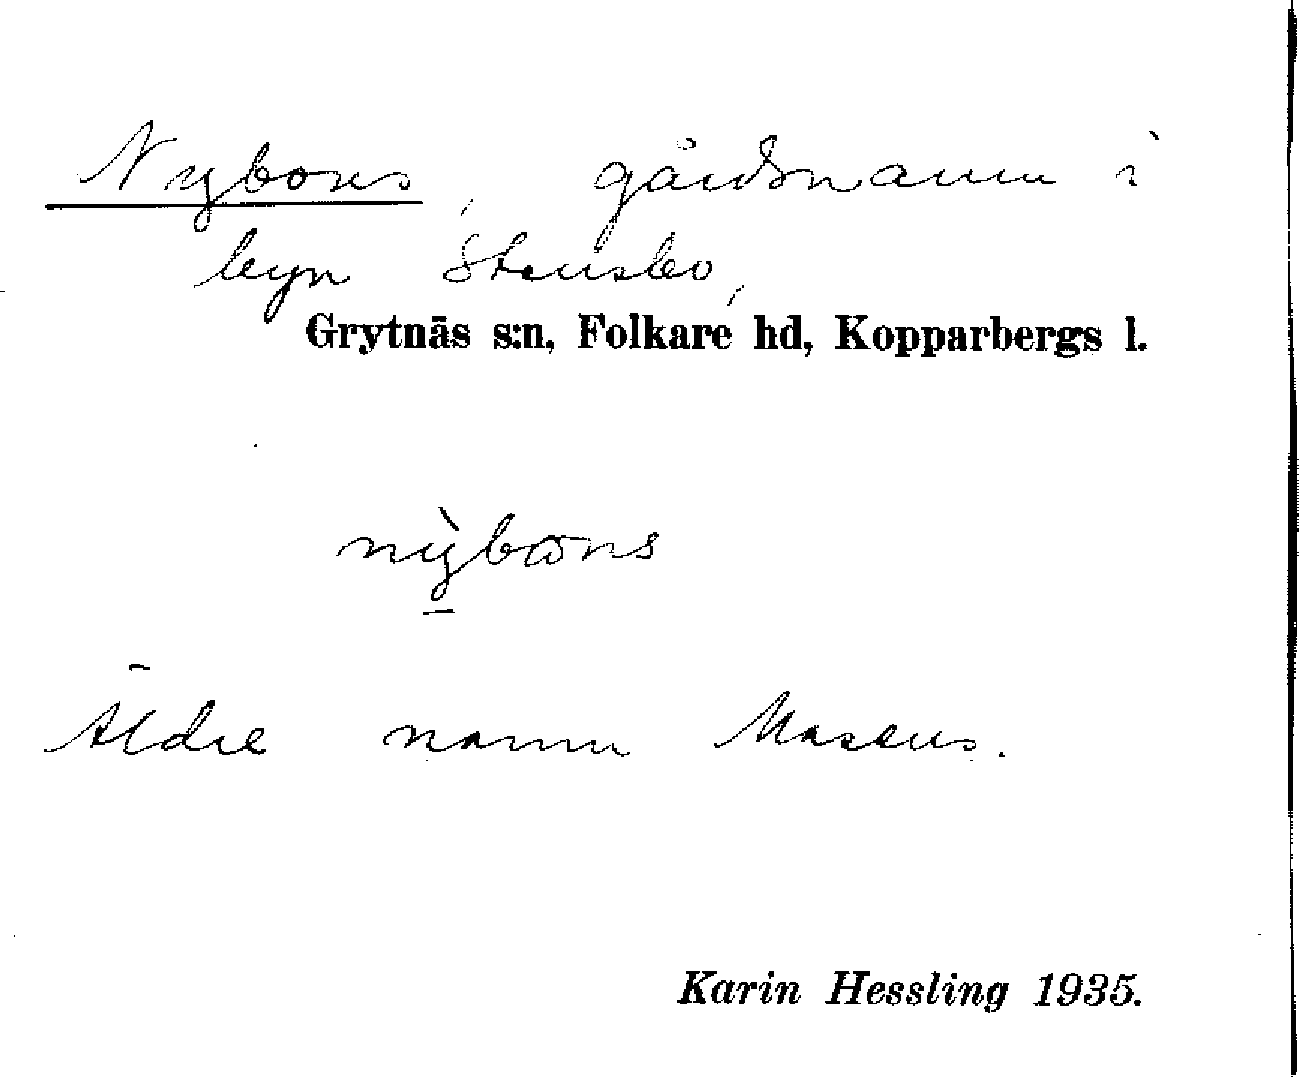 Nybons, gårdsnamn i
byn Stensbo,
Grytnäs s:n, Folkare hd, Kopparbergs l.
nỳbωns
Äldre namn Massus.
Karin Hessling 1935.